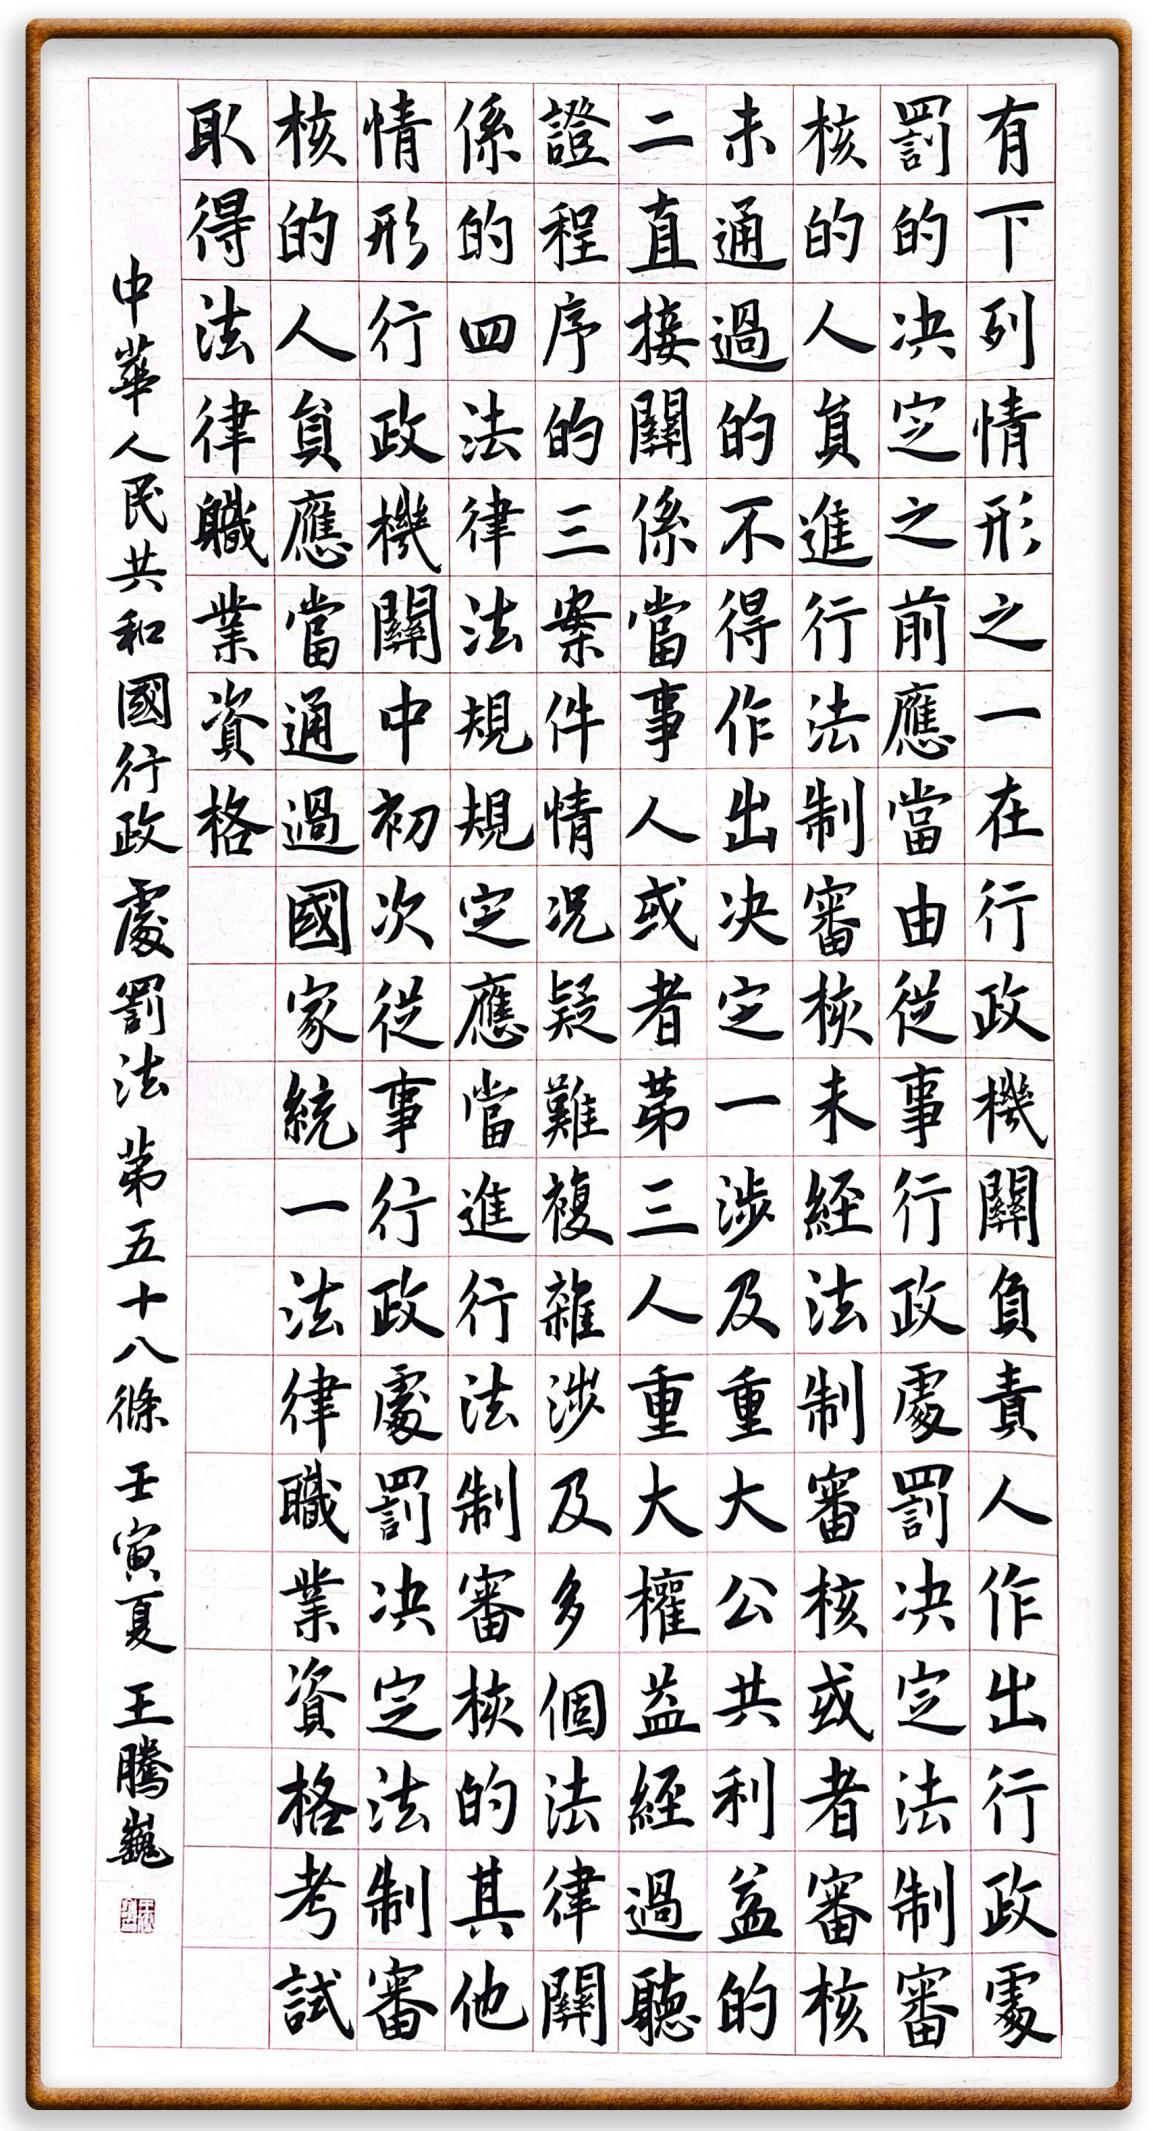 有下列情形之一在行政機關負責人作出行政處
罰的决定之前應當由從事行政處罰决定法制審
核的人員進行法制審核未經法制審核或者審核
未通過的不得作出决定一涉及重大公共利益的
二直接關係當事人或者第三人重大權益經過聽
證程序的三案件情况疑難複雜涉及多個法律關
係的四法律法規規定應當進行法制審核的其他
情形行政機關中初次從事行政處罰决定法制審
核的人員應當通過國家統一法律職業資格考試
取得法律職業資格
中華人民共和國行政處罰法第五十八條 壬寅夏 王騰巍